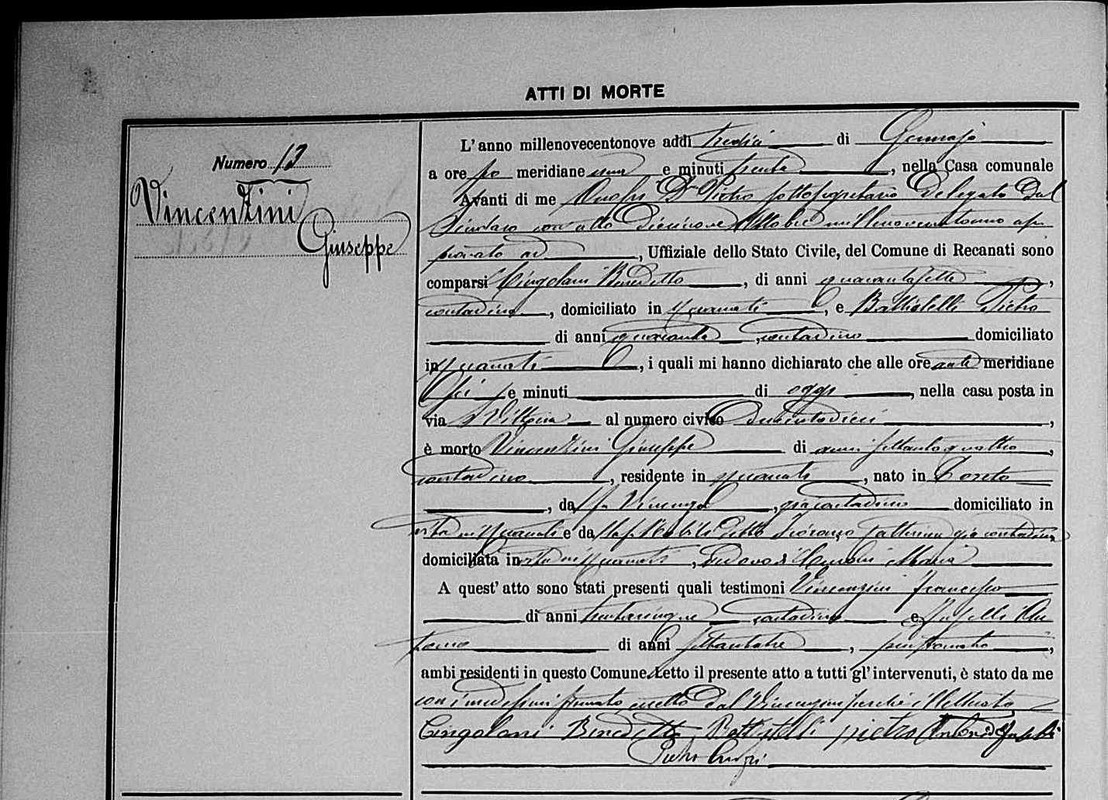 ATTI DI MORTE
Numero 13
Vincenzini
Giuseppe
L'anno millenovecentonove addì tredici di Gennajo
a ore po meridiane una e minuti trenta, nella Casa comunale
Avanti di me Dr Pietro sottosegretario Delegato dal
Sindaco con atto Diecinove Ottobre millenovecentouno ap
provato, Uffiziale dello Stato Civile, del Comune di Recanati sono
comparsi Cingolani Benedetto, di anni quarantasette,
contadino, domiciliato in Recanati, e Battistelli Pietro
di anni quaranta, contadino domiciliato
in Recanati, i quali mi hanno dichiarato che alle ore anti meridiane
e minuti di oggi, nella casa posta in
via al numero civico
è morto Vincenzini Giuseppe di anni settantaquattro,
contadino, residente in Recanati, nato in Loreto
, da fu Vincenzo, già contadino domiciliato in
vita in Recanati e da detta già contadina
domiciliata in vita in Recanati, Maria
A quest'atto sono stati presenti quali testimoni Vincenzini Francesco
di anni trentacinque contadino e An
tonio di anni settantatre, pensionato,
ambi residenti in questo Comune. Letto il presente atto a tutti gl'intervenuti, è stato da me
con i medesimi firmato eccetto dal Vincenzini perchè illetterato
Cingolani Benedetto Battistelli pietro
Pietro